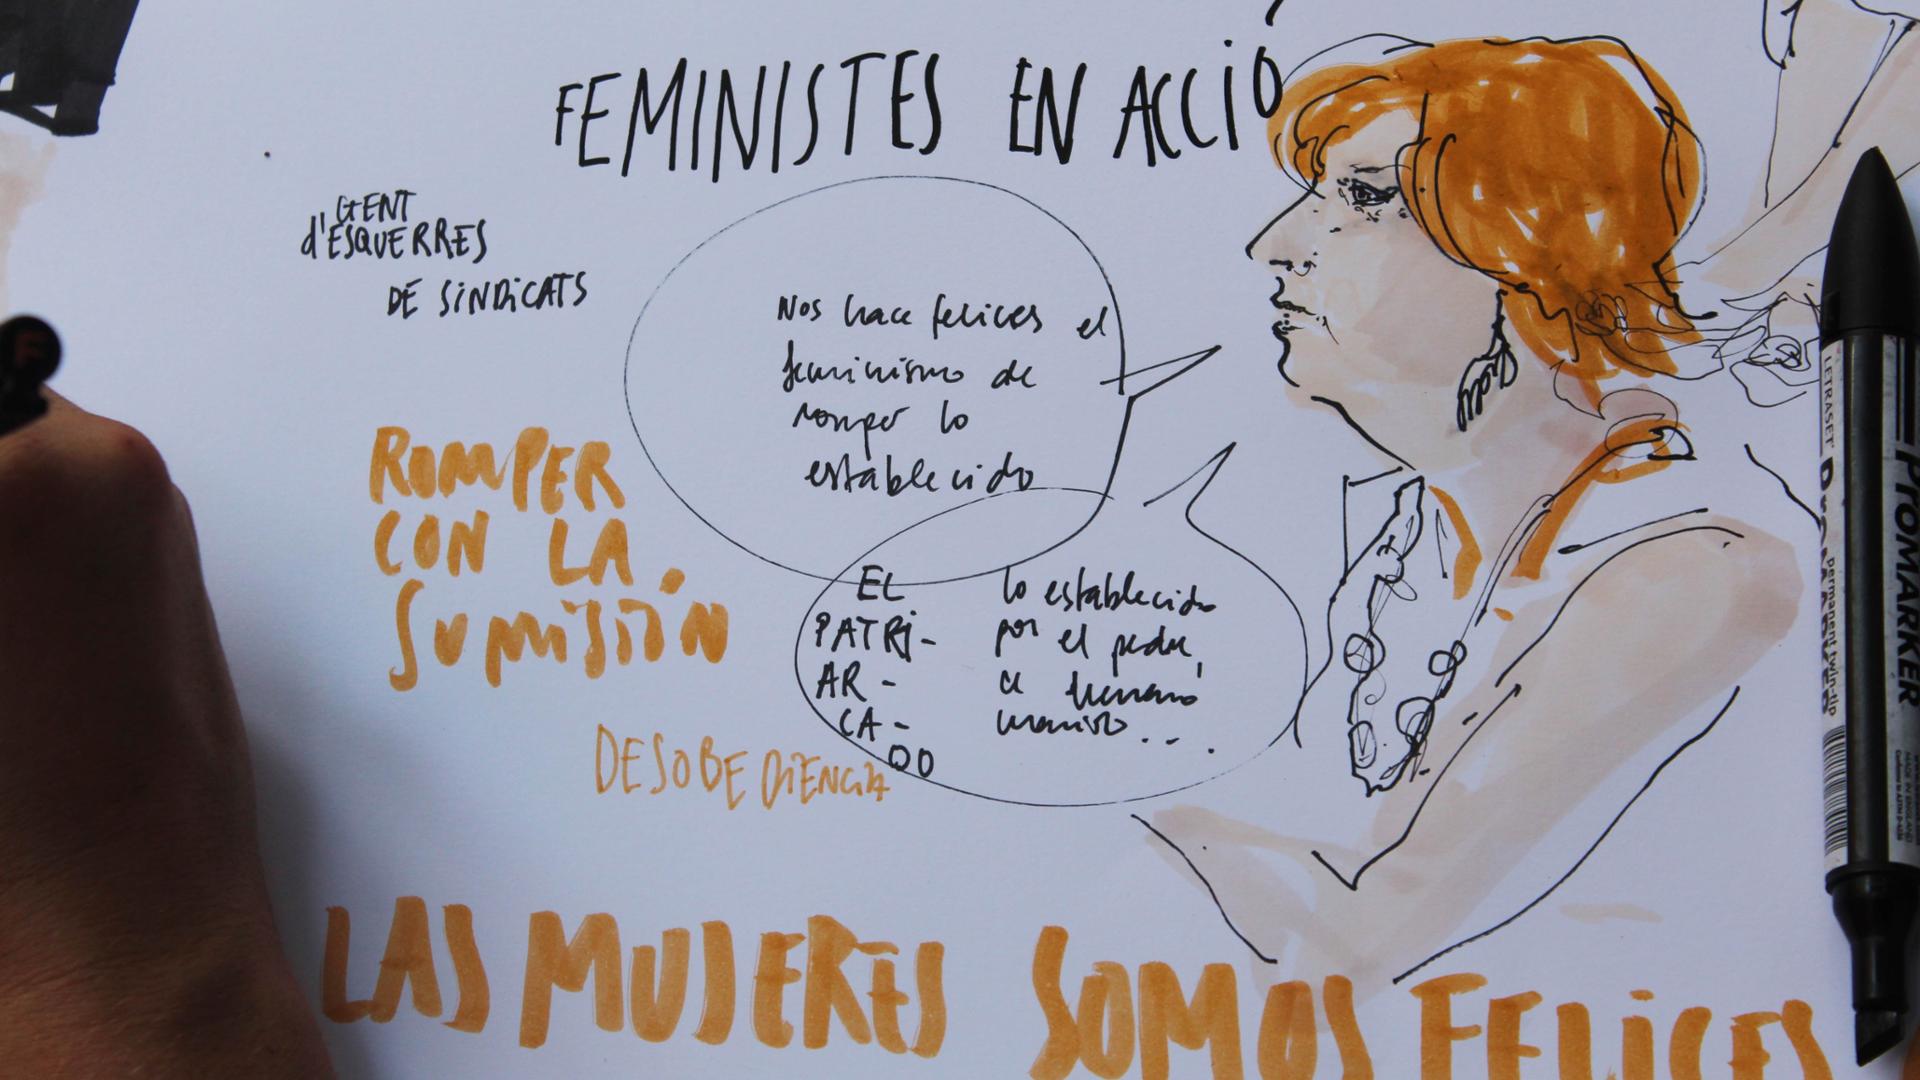 FEMINISTES EN ACCIÓ
GENT
d'ESQUERRES
DE SINDICATS
Nos hace felices el
feminismo de
romper lo
establecido
ROMPER
CON LA
SUMISIÓN
EL
PATRI-
AR-
CA-
DO
lo establecido
por el padre,
hermano
marido...
DESOBEDIENCIA
LAS MUJERES SOMOS FELICES
LETRASET PROMARKER
permanent twin-tip
MADE IN ENGLAND